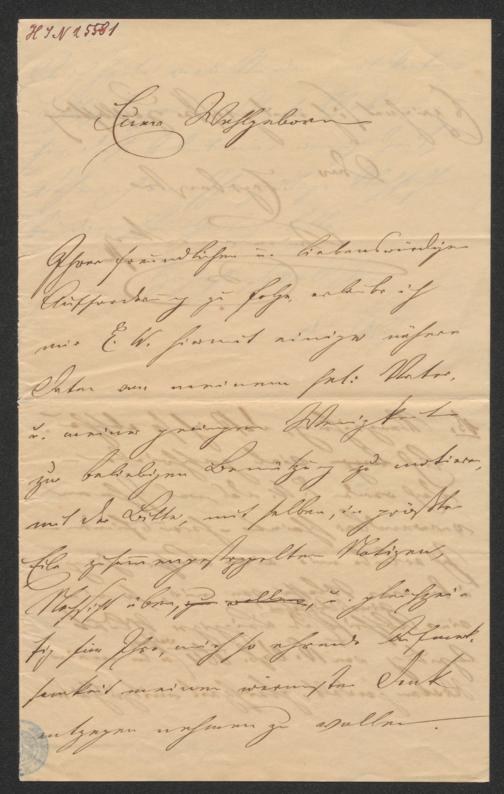 HIN 25581
Euer Wohlgeboren
Ihrer freundlichen u. liebenswürdigen
Aufforderung zu folge, erlaube ich
mir E. W. hiermit einige nähere
Daten von meinem sel: Vater,
u. meiner geringen Wenigkeit
zur beliebigen Benützung zu notieren,
mit der Bitte, mit selben, in größter
Eile zusammengestoppelten Notizen,
Nachsicht üben, zu wollen, u. gleichzei-
tig für Ihre, mich so ehrende Aufmerk-
samkeit meinen wärmsten Dank
entgegen nehmen zu wollen.